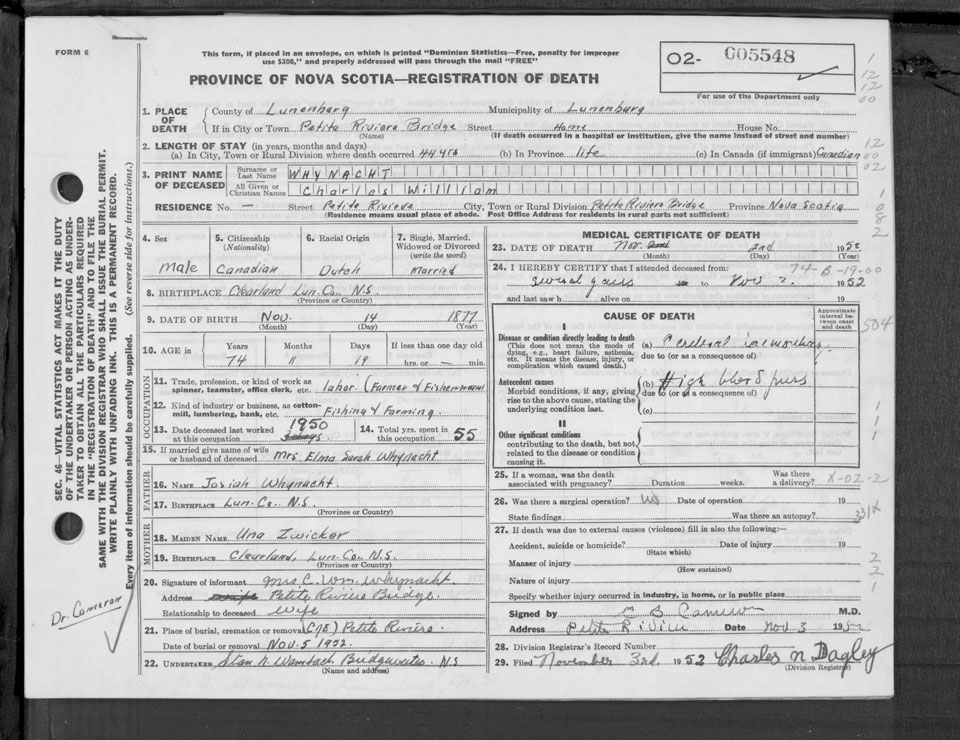 FORM 6
This form, if placed in an envelope, on which is printed "Dominion Statistics—Free, penalty for improper
use $300," and properly addressed will pass through the mail "FREE"
PROVINCE OF NOVA SCOTIA—REGISTRATION OF DEATH
O2- C05548
For use of the Department only
1. PLACE OF DEATH
County of Lunenburg Municipality of Lunenburg
If in City or Town Petite Riviere Bridge Street Home House No.
(Name) (If death occurred in a hospital or institution, give the name instead of street and number)
2. LENGTH OF STAY (in years, months and days)
(a) In City, Town or Rural Division where death occurred 44 yrs (b) In Province life (c) In Canada (if immigrant) Canadian
3. PRINT NAME OF DECEASED
Surname or Last Name WHYNACHT
All Given or Christian Names Charles William
RESIDENCE No. — Street Petite Riviere City, Town or Rural Division Petite Riviere Bridge Province Nova Scotia
(Residence means usual place of abode. Post Office Address for residents in rural parts not sufficient)
4. Sex Male
5. Citizenship (Nationality) Canadian
6. Racial Origin Dutch
7. Single, Married, Widowed or Divorced (write the word) Married
8. BIRTHPLACE Clearland Lun. Co. N.S.
(Province or Country)
9. DATE OF BIRTH Nov. 14 1877
(Month) (Day) (Year)
10. AGE in Years Months Days If less than one day old
74 11 19 hrs. or — min.
OCCUPATION
11. Trade, profession, or kind of work as spinner, teamster, office clerk, etc. labor (Farmer & Fisherman)
12. Kind of industry or business, as cotton-mill, lumbering, bank, etc. Fishing & Farming
13. Date deceased last worked at this occupation 1950
14. Total yrs. spent in this occupation 55
15. If married give name of wife or husband of deceased Mrs. Elma Sarah Whynacht
FATHER
16. NAME Josiah Whynacht
17. BIRTHPLACE Lun. Co. N.S.
(Province or Country)
MOTHER
18. MAIDEN NAME Una Zwicker
19. BIRTHPLACE Clearland, Lun. Co. N.S.
(Province or Country)
20. Signature of informant Mrs. C. Wm. Whynacht
Address Petite Riviere Bridge
Relationship to deceased wife
21. Place of burial, cremation or removal (C of E) Petite Riviere
Date of burial or removal Nov. 5 1952.
22. UNDERTAKER Stan N. Wambach Bridgewater N.S
(Name and address)
MEDICAL CERTIFICATE OF DEATH
23. DATE OF DEATH Nov. 2nd 1952
(Month) (Day) (Year)
24. I HEREBY CERTIFY that I attended deceased from: 74-B-19-00
several years to Nov 2. 1952
and last saw h alive on 19
CAUSE OF DEATH
Approximate interval between onset and death
504
I
Disease or condition directly leading to death (a) Cerebral haemorrhage
(This does not mean the mode of dying, e.g., heart failure, asthenia, etc. It means the disease, injury, or complication which caused death.)
due to (or as a consequence of)
Antecedent causes (b) High blood press
Morbid conditions, if any, giving rise to the above cause, stating the underlying condition last.
due to (or as a consequence of)
(c)
II
Other significant conditions
contributing to the death, but not related to the disease or condition causing it.
25. If a woman, was the death associated with pregnancy? Duration weeks. Was there a delivery? X-02-2
26. Was there a surgical operation? no Date of operation 19
State findings Was there an autopsy? 331X
27. If death was due to external causes (violence) fill in also the following:—
Accident, suicide or homicide? Date of injury 19
(State which)
Manner of injury
(How sustained)
Nature of injury
Specify whether injury occurred in Industry, in home, or in public place
Signed by C B Cameron M.D.
Address Petite Riviere Date Nov 3 1952
28. Division Registrar's Record Number
29. Filed November 3rd 1952 Charles N Dagley
(Division Registrar)
SEC. 46—VITAL STATISTICS ACT MAKES IT THE DUTY
OF THE UNDERTAKER OR PERSON ACTING AS UNDER-
TAKER TO OBTAIN ALL THE PARTICULARS REQUIRED
IN THE "REGISTRATION OF DEATH" AND TO FILE THE
SAME WITH THE DIVISION REGISTRAR WHO SHALL ISSUE THE BURIAL PERMIT.
WRITE PLAINLY WITH UNFADING INK. THIS IS A PERMANENT RECORD.
Every item of information should be carefully supplied. (See reverse side for instructions.)
Dr. Cameron
1
12
12
00
12
00
02
1
0
8
2
1
1
1
2
2
1